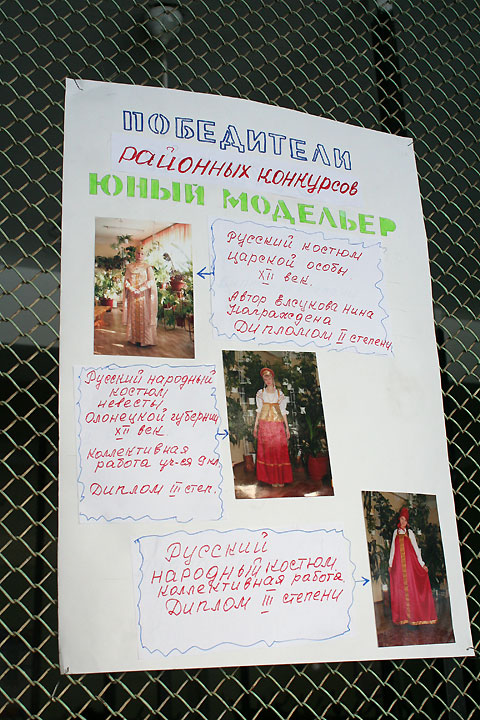 ПОБЕДИТЕЛИ
РАЙОННЫХ КОНКУРСОВ
ЮНЫЙ МОДЕЛЬЕР
РУССКИЙ КОСТЮМ
ЦАРСКОЙ ОСОБЫ
XII ВЕК.
АВТОР ЕЛСУКОВА НИНА
НАГРАЖДЕНА
ДИПЛОМОМ II СТЕПЕНИ
РУССКИЙ НАРОДНЫЙ
КОСТЮМ
НЕВЕСТЫ
ОЛОНЕЦКОЙ ГУБЕРНИИ
XII ВЕК
КОЛЛЕКТИВНАЯ
РАБОТА УЧ-СЯ 9 КЛ.
ДИПЛОМ III СТЕП.
РУССКИЙ
НАРОДНЫЙ КОСТЮМ
КОЛЛЕКТИВНАЯ РАБОТА
ДИПЛОМ III СТЕПЕНИ